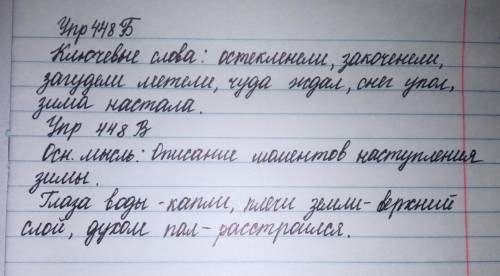 Упр 448 Б
Ключевые слова: остекленели, закоченели,
загудели метели, чуда ждал, снег упол,
зима настала.
Упр 448 В
Осн. мысль: Описание моментов наступления
зимы.
Глаза воды - капли, плечи земли - верхний
слой, духом пал - расстроился.